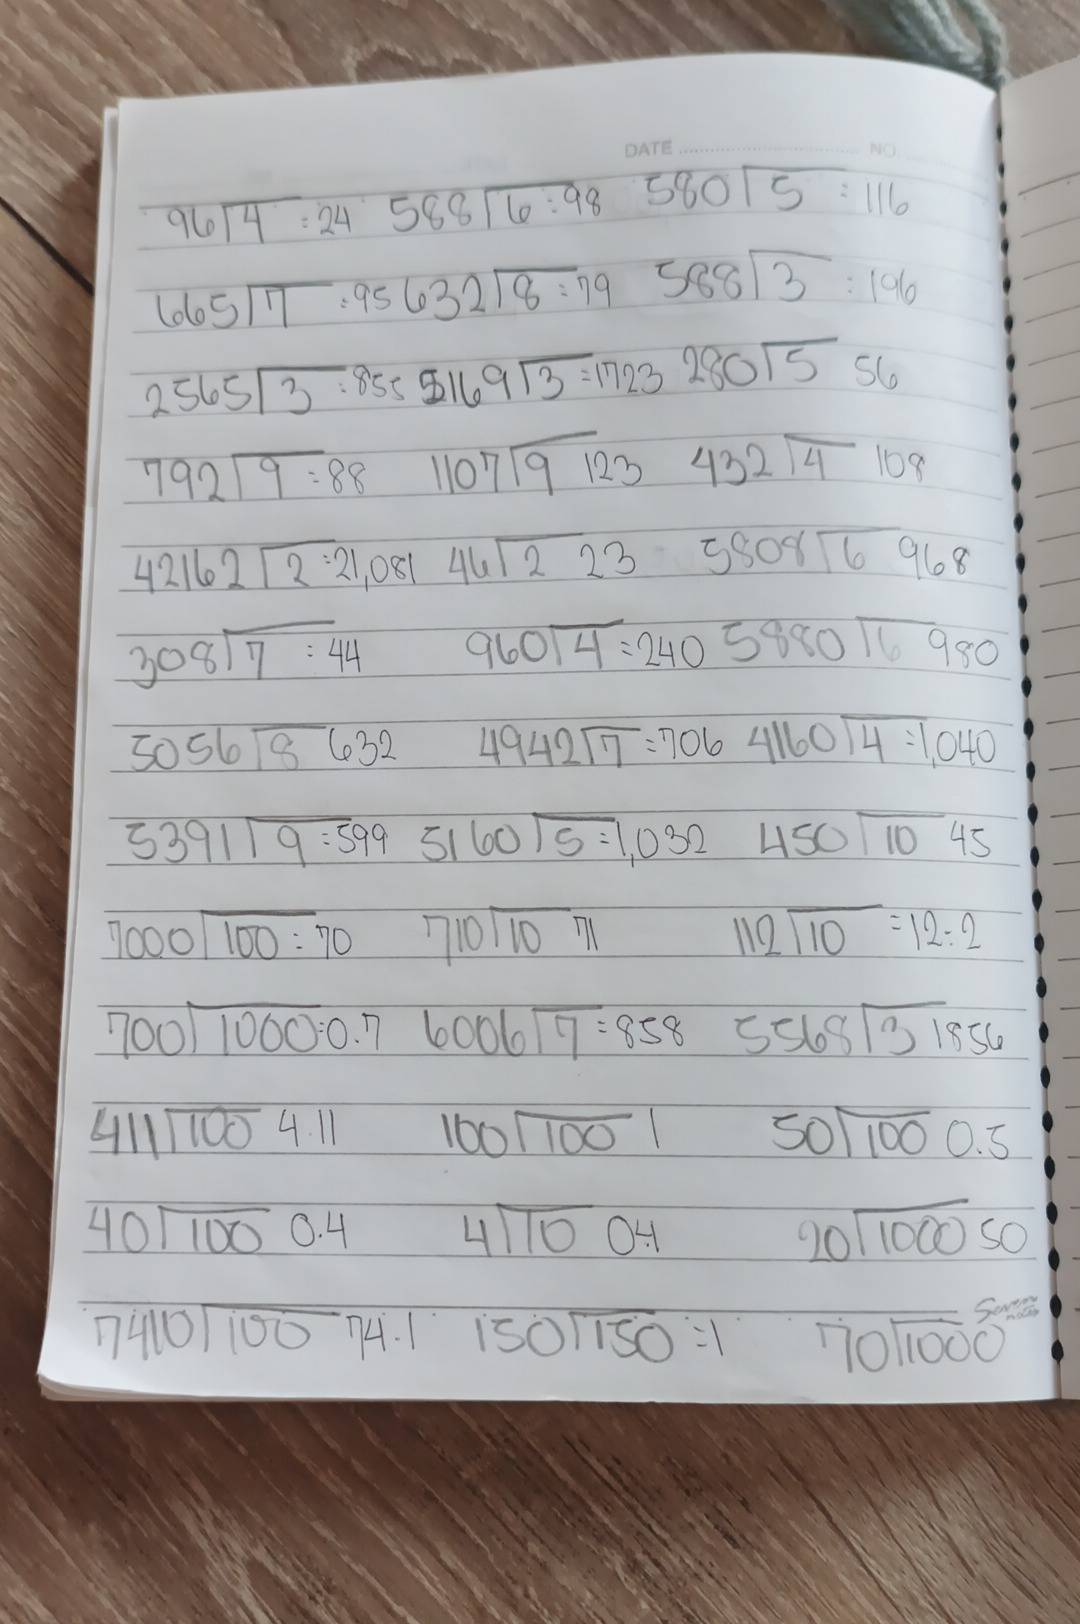 DATE NO
96⟌4 = 24 588⟌6 = 98 580⟌5 = 116
665⟌7 = 95 632⟌8 = 79 588⟌3 = 196
2565⟌3 = 855 5169⟌3 = 1723 280⟌5 56
792⟌9 = 88 1107⟌9 123 432⟌4 108
42162⟌2 = 21,081 46⟌2 23 5808⟌6 968
308⟌7 = 44 960⟌4 = 240 5880⟌6 980
5056⟌8 632 4942⟌7 = 706 4160⟌4 = 1,040
5391⟌9 = 599 5160⟌5 = 1,032 450⟌10 45
7000⟌100 = 70 710⟌10 71 112⟌10 = 12.2
700⟌1000 = 0.7 6006⟌7 = 858 5568⟌3 1856
411⟌100 4.11 100⟌100 1 50⟌100 0.5
40⟌100 0.4 4⟌10 0.4 20⟌1000 50
7410⟌100 74.1 150⟌150 = 1 70⟌1000